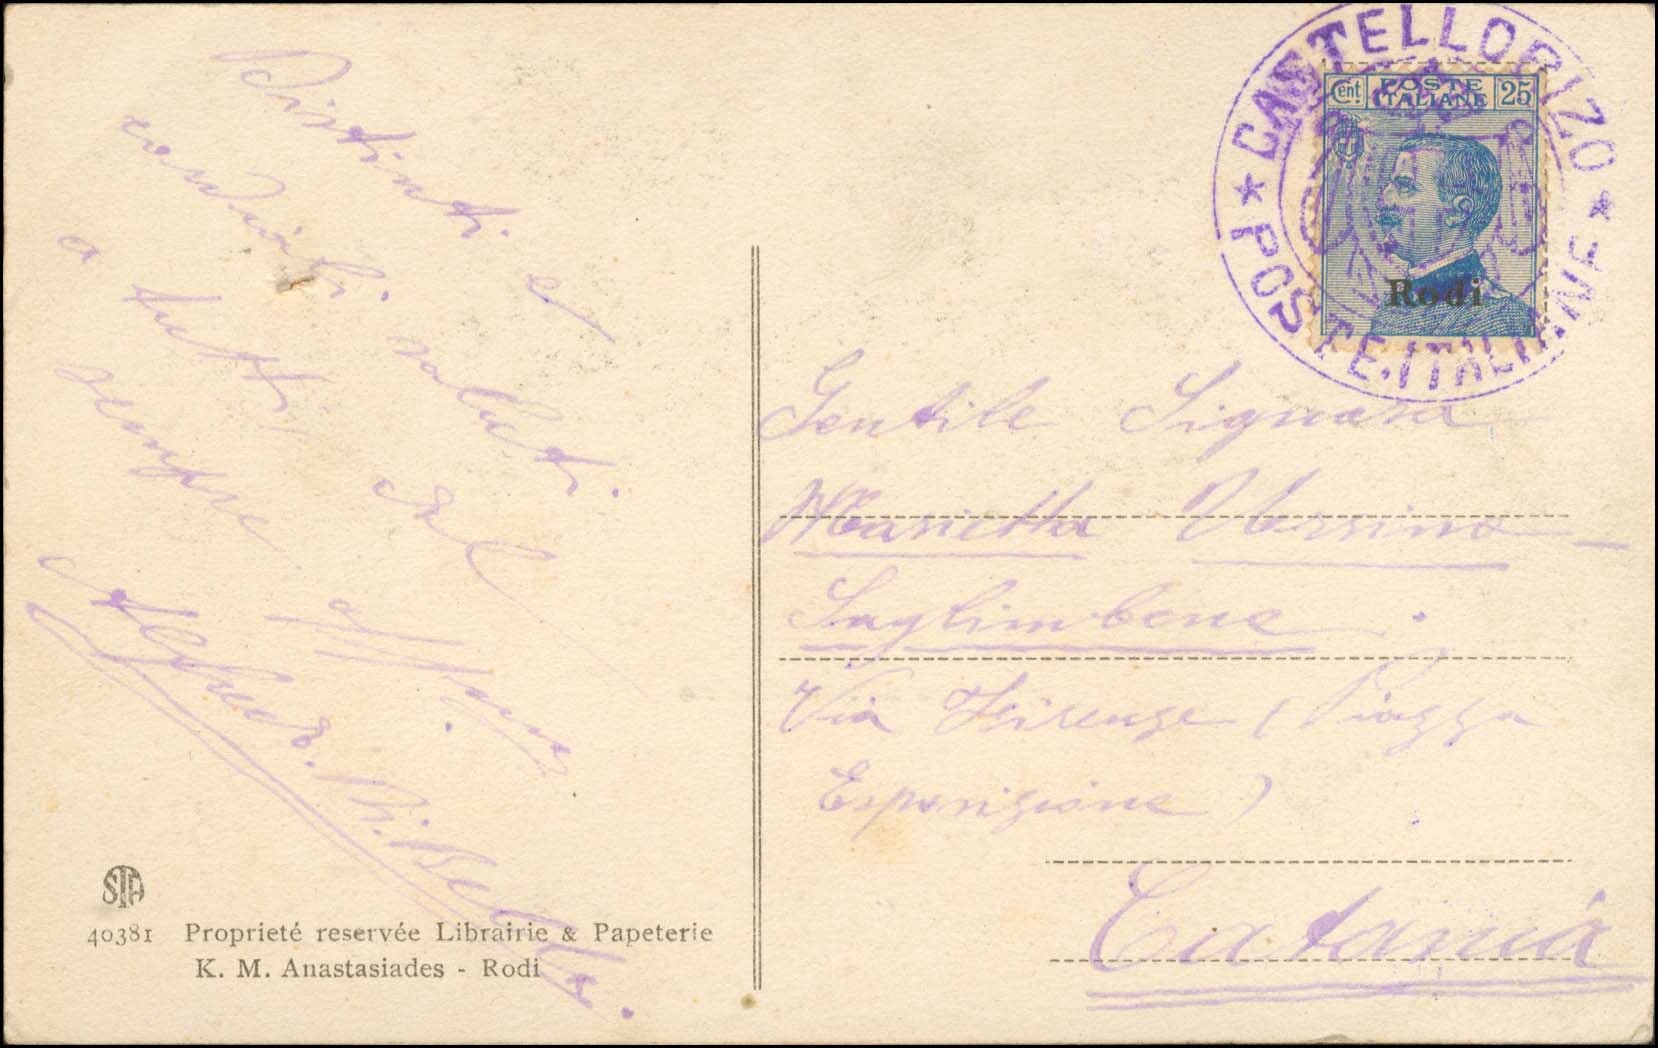 CASTELLORIZO
POSTE ITALIANE
Cent. POSTE ITALIANE 25
Rodi
Distinti e
cordiali saluti
a tutti
sempre
Gentile Signora
Marietta Ursino -
Saglimbene
Via Firenze (Piazza
Esposizione)
Catania
STA
40381 Proprieté reservée Librairie & Papeterie
K. M. Anastasiades - Rodi